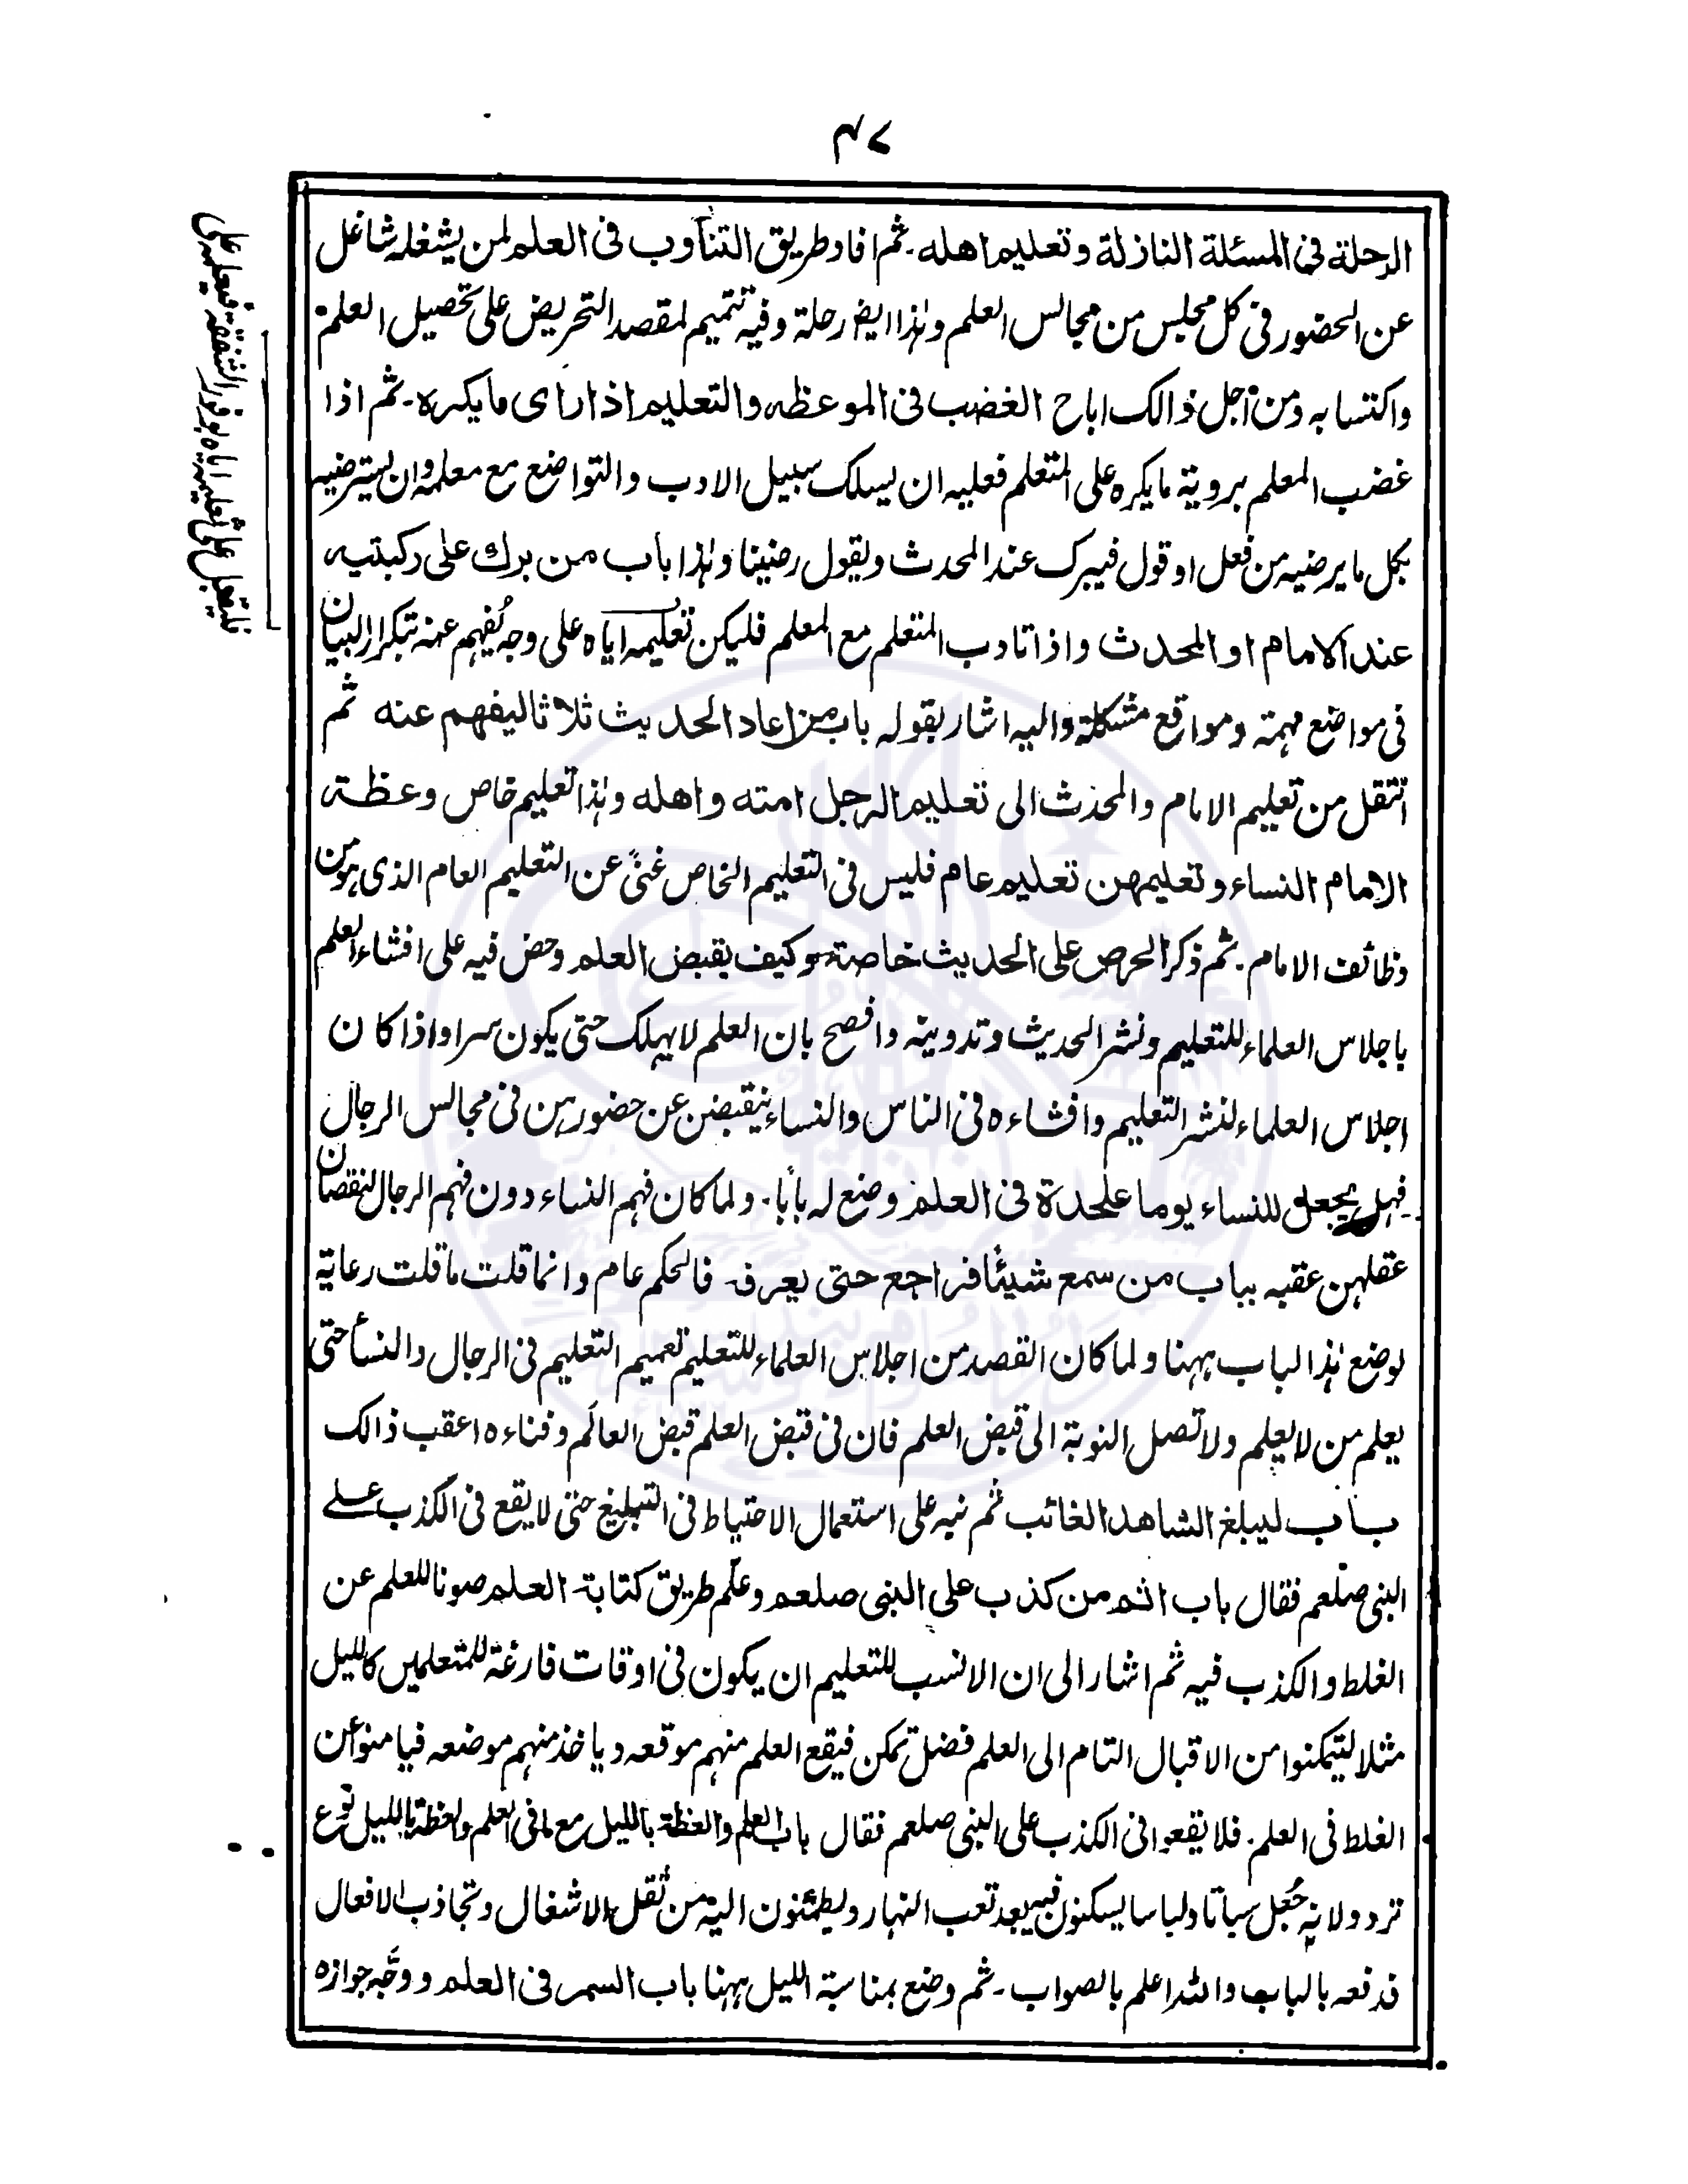 ۴۷
الرحلة فى المسئلة النازلة وتعليم اهله۔ ثم افاد طريق التنآوب فى العلم لمن يشغله شاغل
عن الحضور فى كل مجلس من مجالس العلم وہٰذا ايضا رحلة وفيه تتميم لمقصد التحريض على تحصيل العلم
واكتسابه ومن اجل ذالك اباح الغضب فى الموعظه والتعليم اذا رای مايكره۔ ثم اذا
غضب المعلم بروية مايكره على المتعلم فعليه ان يسلك سبيل الادب والتواضع مع معلمه وان يسترضيه
بكل مايرضيه من فعل او قول فيبرك عند المحدث ويقول رضينا وہٰذا باب من برك على ركبتيه
عند الامام او المحدث واذا تادب المتعلم مع المعلم فليكن تعليمه اياه على وجه يُفهم عنه بتكرار البيان
فى مواضع مہمة ومواقع مشكلة واليه اشار بقوله باب من اعاد الحديث ثلاثا ليفهم عنه ثم
انتقل من تعليم الامام والمحدث الى تعليم الرجل امته واهله وہٰذا تعليم خاص وعظة
الامام النساء وتعليمهن تعليم عام فليس فى التعليم الخاص غنىً عن التعليم العام الذى ہو من
وظائف الامام۔ ثم ذكر الحرص على الحديث خاصة وكيف يقبض العلم وحض فيه على افشاء العلم
باجلاس العلماء للتعليم ونشر الحديث وتدوينه وافصح بان العلم لايہلك حتى يكون سرا واذا كان
اجلاس العلماء لنشر التعليم وافشاءه فى الناس والنساء ينقبضن عن حضورہن فى مجالس الرجال
فہل يجعل للنساء يوما علٰحدة فى العلم وضع له بابا۔ ولما كان فہم النساء دون فہم الرجال لنقصان
عقلہن عقبه بباب من سمع شيئا فراجع حتى يعرف۔ فالحكم عام وانما قلت ماقلت رعاية
لوضع ہٰذا الباب ہہنا ولما كان القصد من اجلاس العلماء للتعليم تعميم التعليم فى الرجال والنسأ حتى
يعلم من لايعلم ولا تصل النوبة الى قبض العلم فان فى قبض العلم قبض العالَم وفناءه اعقب ذالك
باب ليبلغ الشاهد الغائب ثم نبه على استعمال الاحتياط فى التبليغ حتى لا يقع فى الكذب على
النبى صلعم فقال باب اثم من كذب على النبى صلعم وعلّم طريق كتابة العلم صونا للعلم عن
الغلط والكذب فيه ثم اشار الى ان الانسب للتعليم ان يكون فى اوقات فارغة للمتعلمين كالليل
مثلا ليتمكنوا من الاقبال التام الى العلم فضل تمكن فيقع العلم منہم موقعه وياخذ منہم موضعه فيامنوا عن
الغلط فى العلم۔ فلا يقعوا فى الكذب على النبى صلعم فقال باب العلم والعظة بالليل مع ما فى العلم والعظة بالليل نوع
تردد ولانه جُعل سباتا ولباسا ليسكنوا فيه بعد تعب النہار وليطمئنون اليه من ثقل الاشغال وتجاذب الافعال
فدفعه بالباب والله اعلم بالصواب۔ ثم وضع بمناسبة الليل ہہنا باب السمر فى العلم ووجّه جوازه